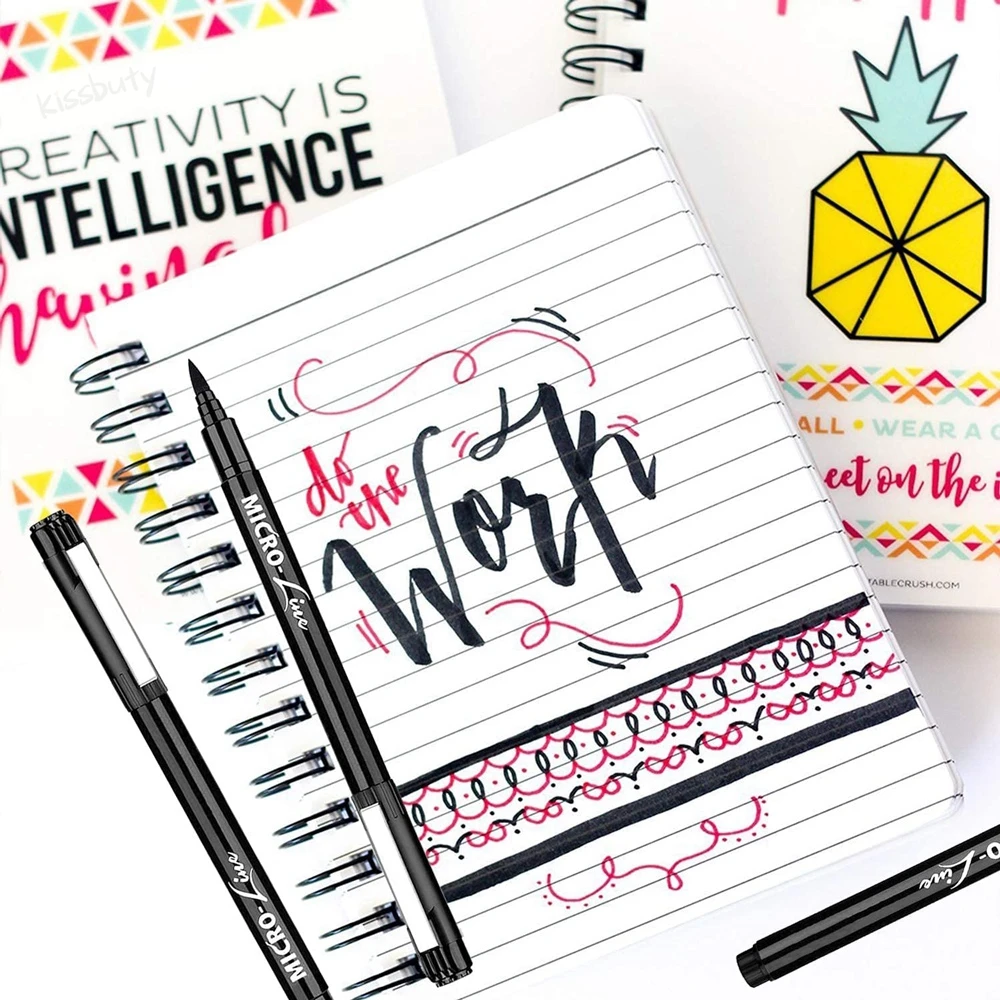 kissbuty
CREATIVITY IS
INTELLIGENCE
having
do
the
Work
MICRO-Line
MICRO-Line
Line
ALL • WEAR A
eet on the i
TABLECRUSH.COM